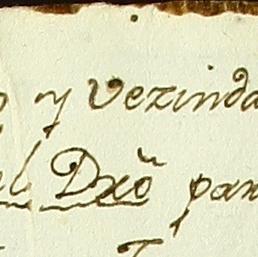 y Vezinda
el Dxõ par